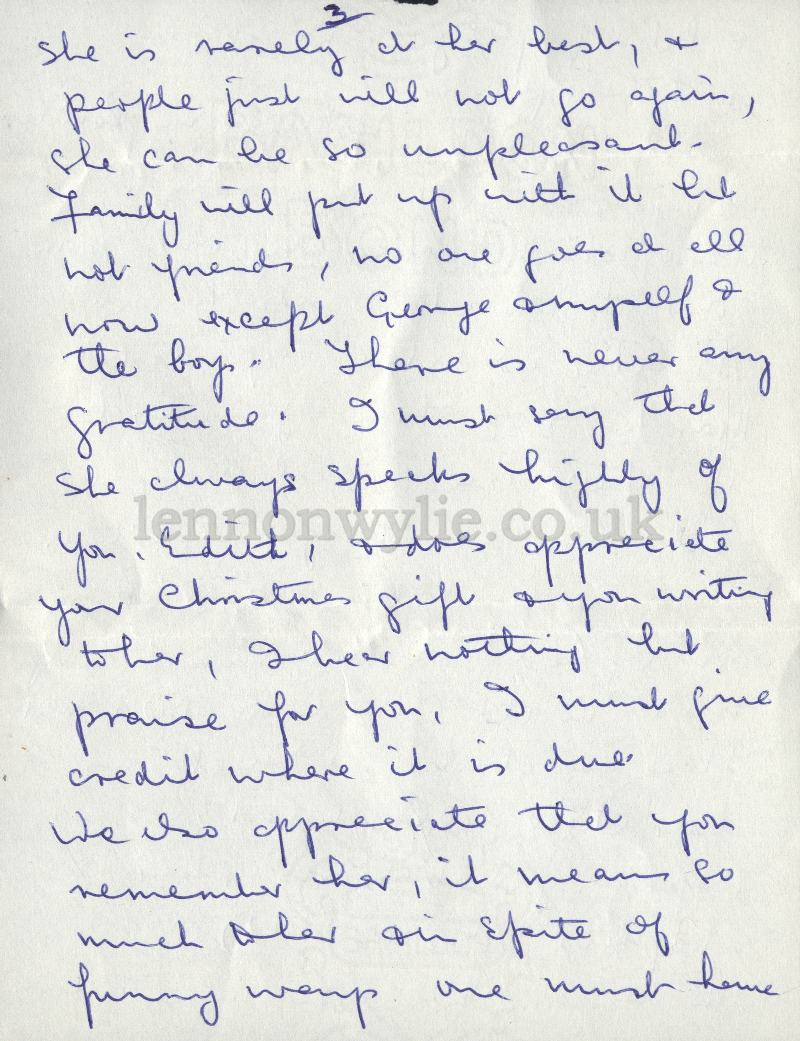 3
she is rarely at her best, &
people just will not go again,
she can be so unpleasant.
Family will put up with it but
not friends, no one goes at all
now except George & myself &
the boys. There is never any
gratitude. I must say that
she always speaks highly of
you, Edith, & does appreciate
your Christmas gift & you writing
to her, I hear nothing but
praise for you, I must give
credit where it is due.
We also appreciate that you
remember her, it means so
much to her & in spite of
funny ways one must have
lennonwylie.co.uk